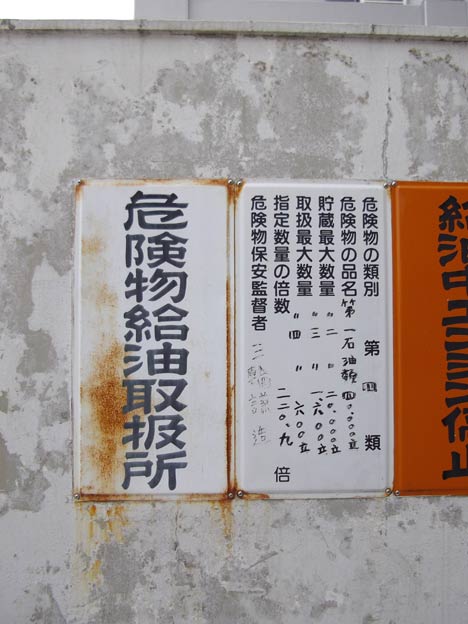 危険物給油取扱所
危険物の類別 第四類
危険物の品名 第一石油類 四〇,〇〇〇立
貯蔵最大数量 〃 二 〃 二〇,〇〇〇立
〃 三 〃 一,六〇〇立
取扱最大数量 〃 四 〃 六〇〇立
指定数量の倍数 二二〇.九 倍
危険物保安監督者
給油中エンジン停止